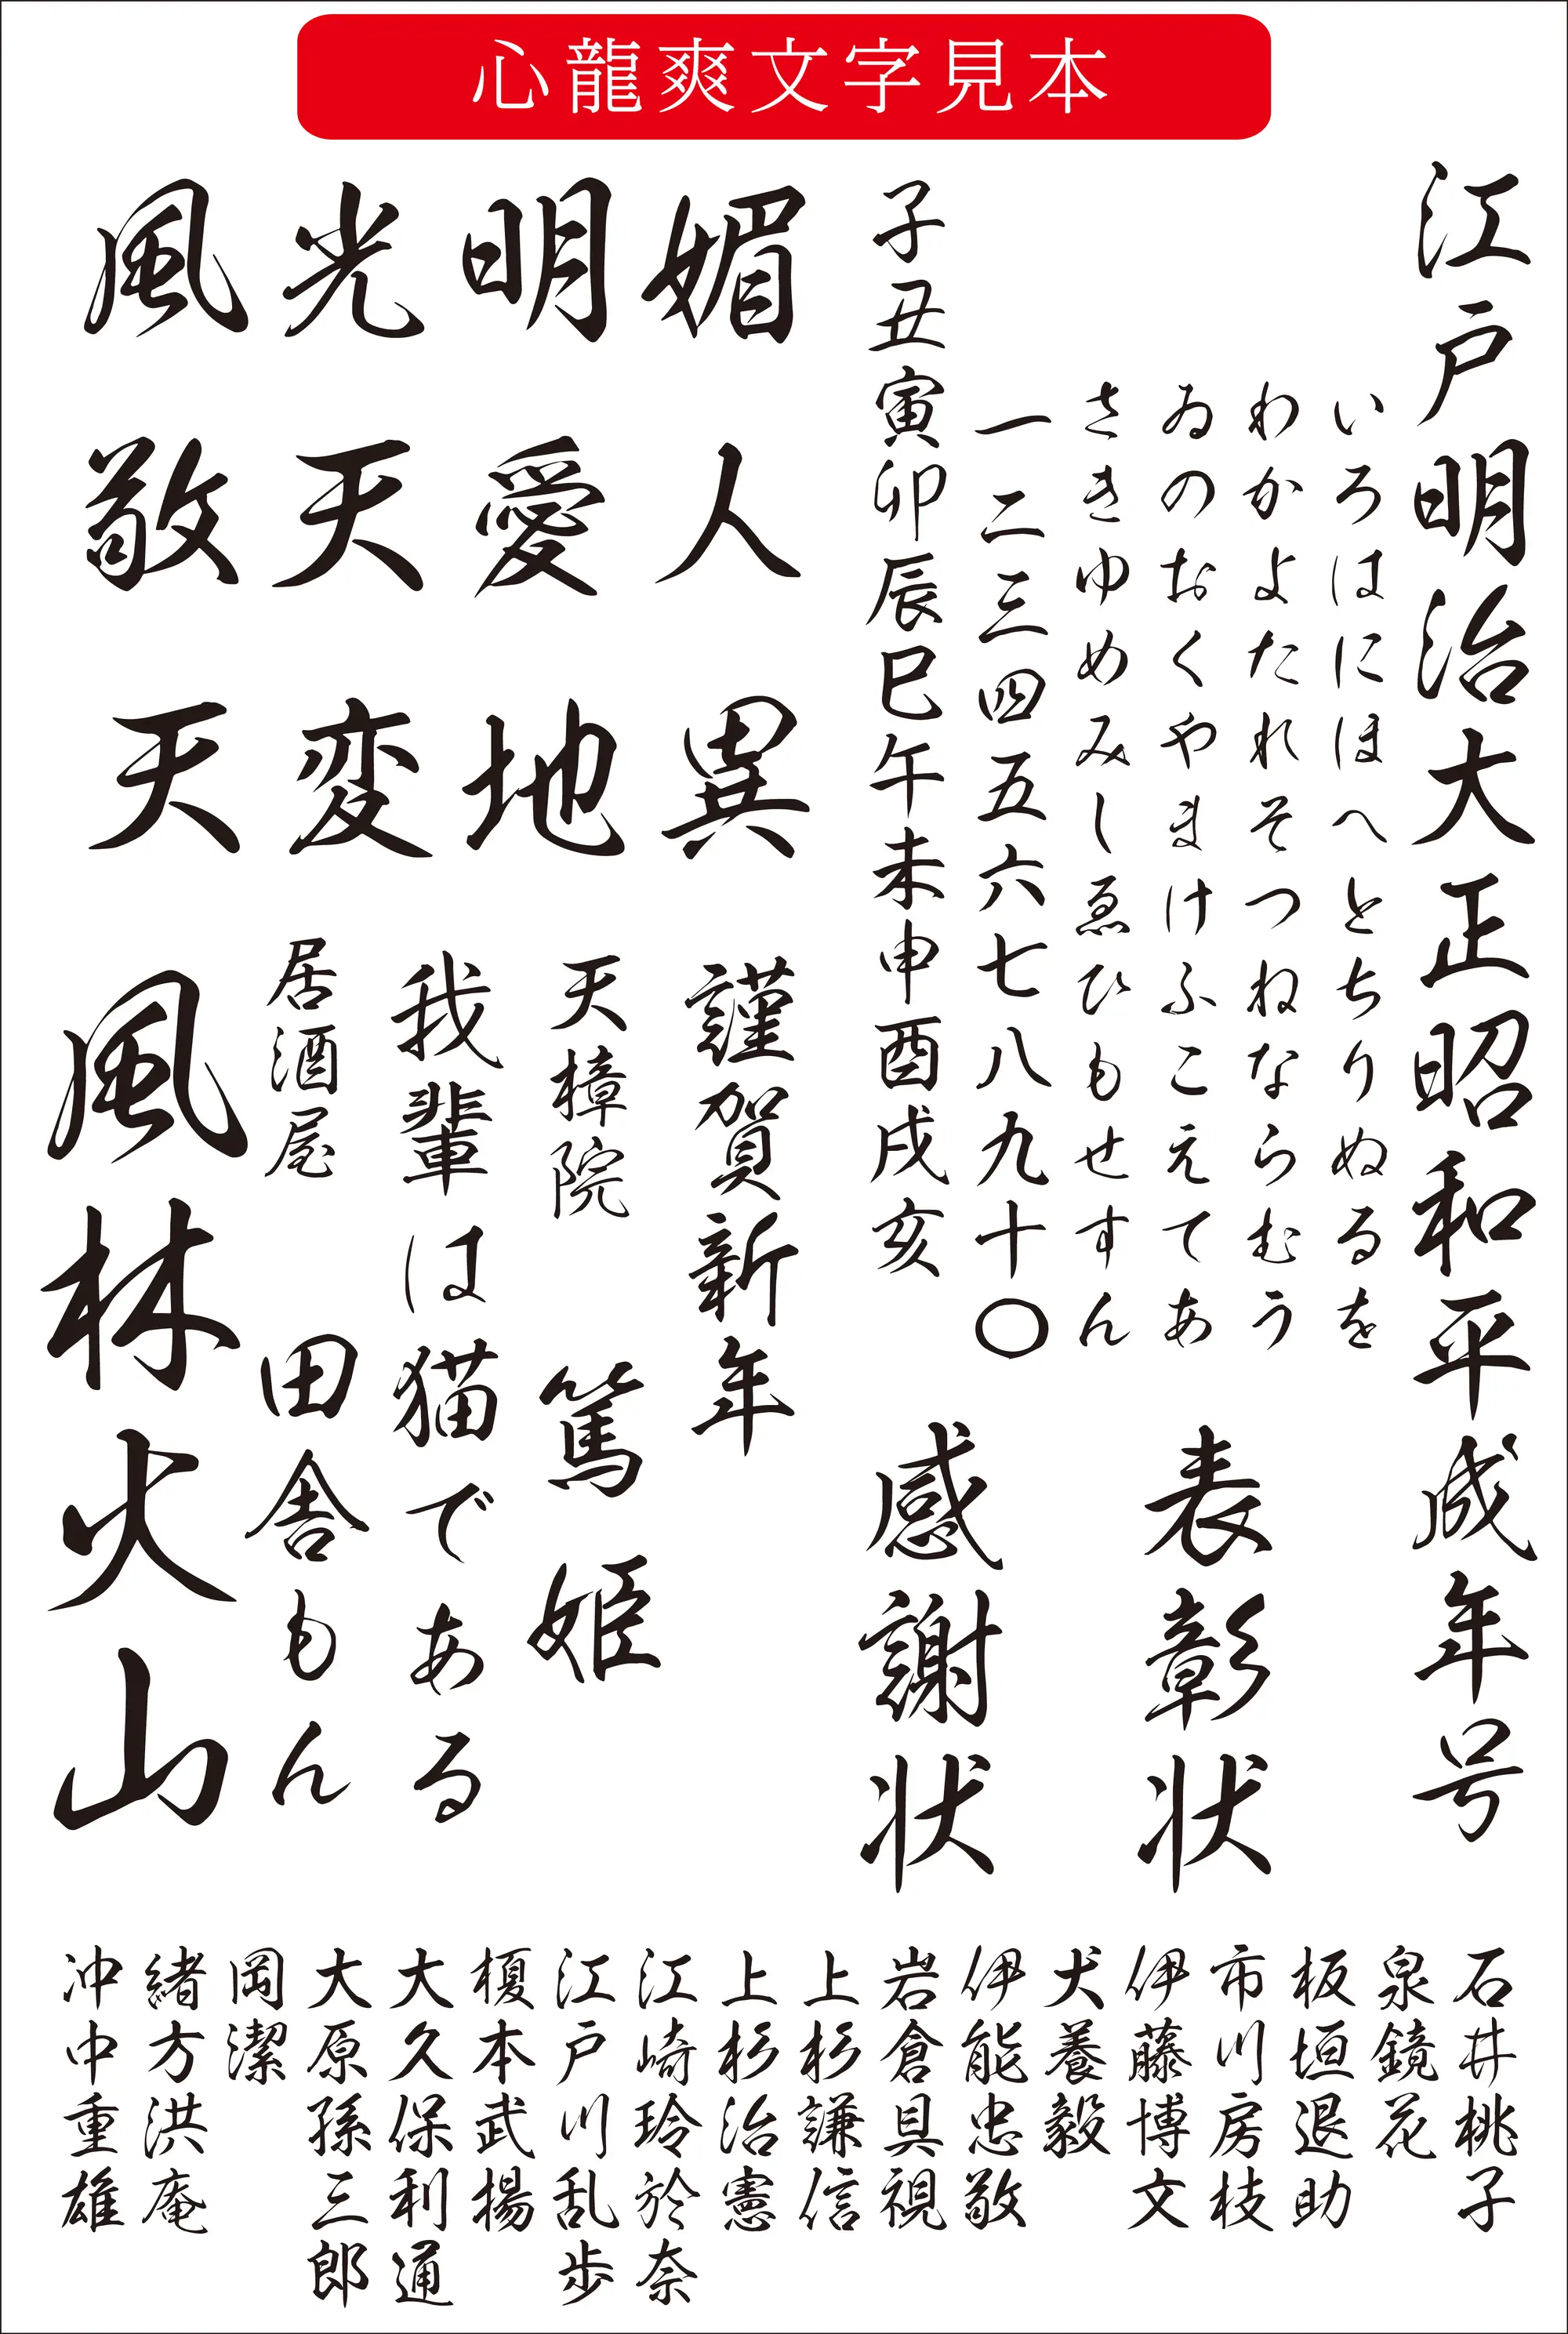 心龍爽文字見本
江戸明治大正昭和平成年号
いろはにほへとちりぬるを
わかよたれそつねならむう
ゐのおくやまけふこえてあ
さきゆめみしゑひもせすん
一二三四五六七八九十〇
子丑寅卯辰巳午未申酉戌亥
表彰状
感謝状
風光明媚
敬天愛人
天変地異
謹賀新年
天樟院
篤姫
我輩は猫である
居酒屋
田舎もん
風林火山
石井桃子
泉鏡花
板垣退助
市川房枝
伊藤博文
犬養毅
伊能忠敬
岩倉具視
上杉謙信
上杉治憲
江崎玲於奈
江戸川乱歩
榎本武揚
大久保利通
大原孫三郎
岡潔
緒方洪庵
沖中重雄